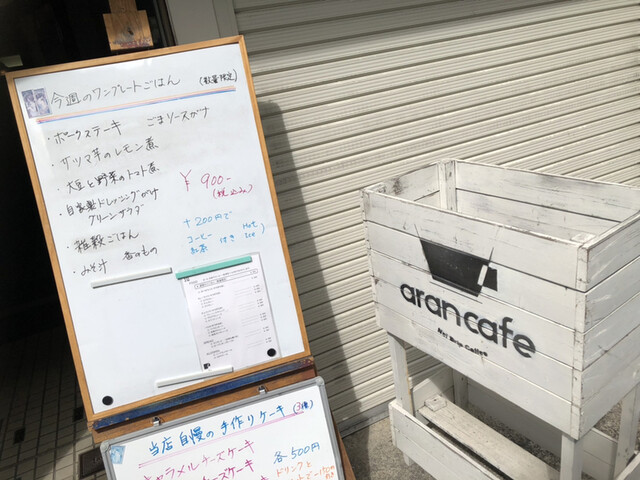 今週のワンプレートごはん (数量限定)
・ポークステーキ ごまソースがけ
・サツマ芋のレモン煮
・大豆と野菜のトマト煮
・自家製ドレッシングがけ
グリーンサラダ
・雑穀ごはん
・みそ汁 香のもの
¥900-
(税込み)
+200円で
コーヒー
紅茶 付き
Hot
Ice
当店自慢の手作りケーキ
キャラメルチーズケーキ
チーズケーキ
各500円
ドリンクと
aran cafe
Hot Drip Coffee